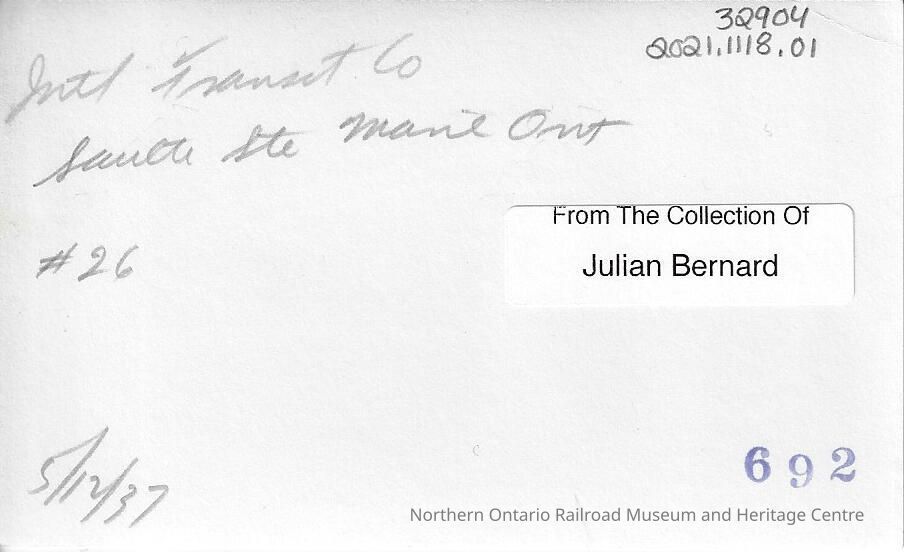 32904
2021.1118.01
Intl Transit Co
Sault Ste Marie Ont
From The Collection Of
Julian Bernard
#26
5/12/37
692
Northern Ontario Railroad Museum and Heritage Centre